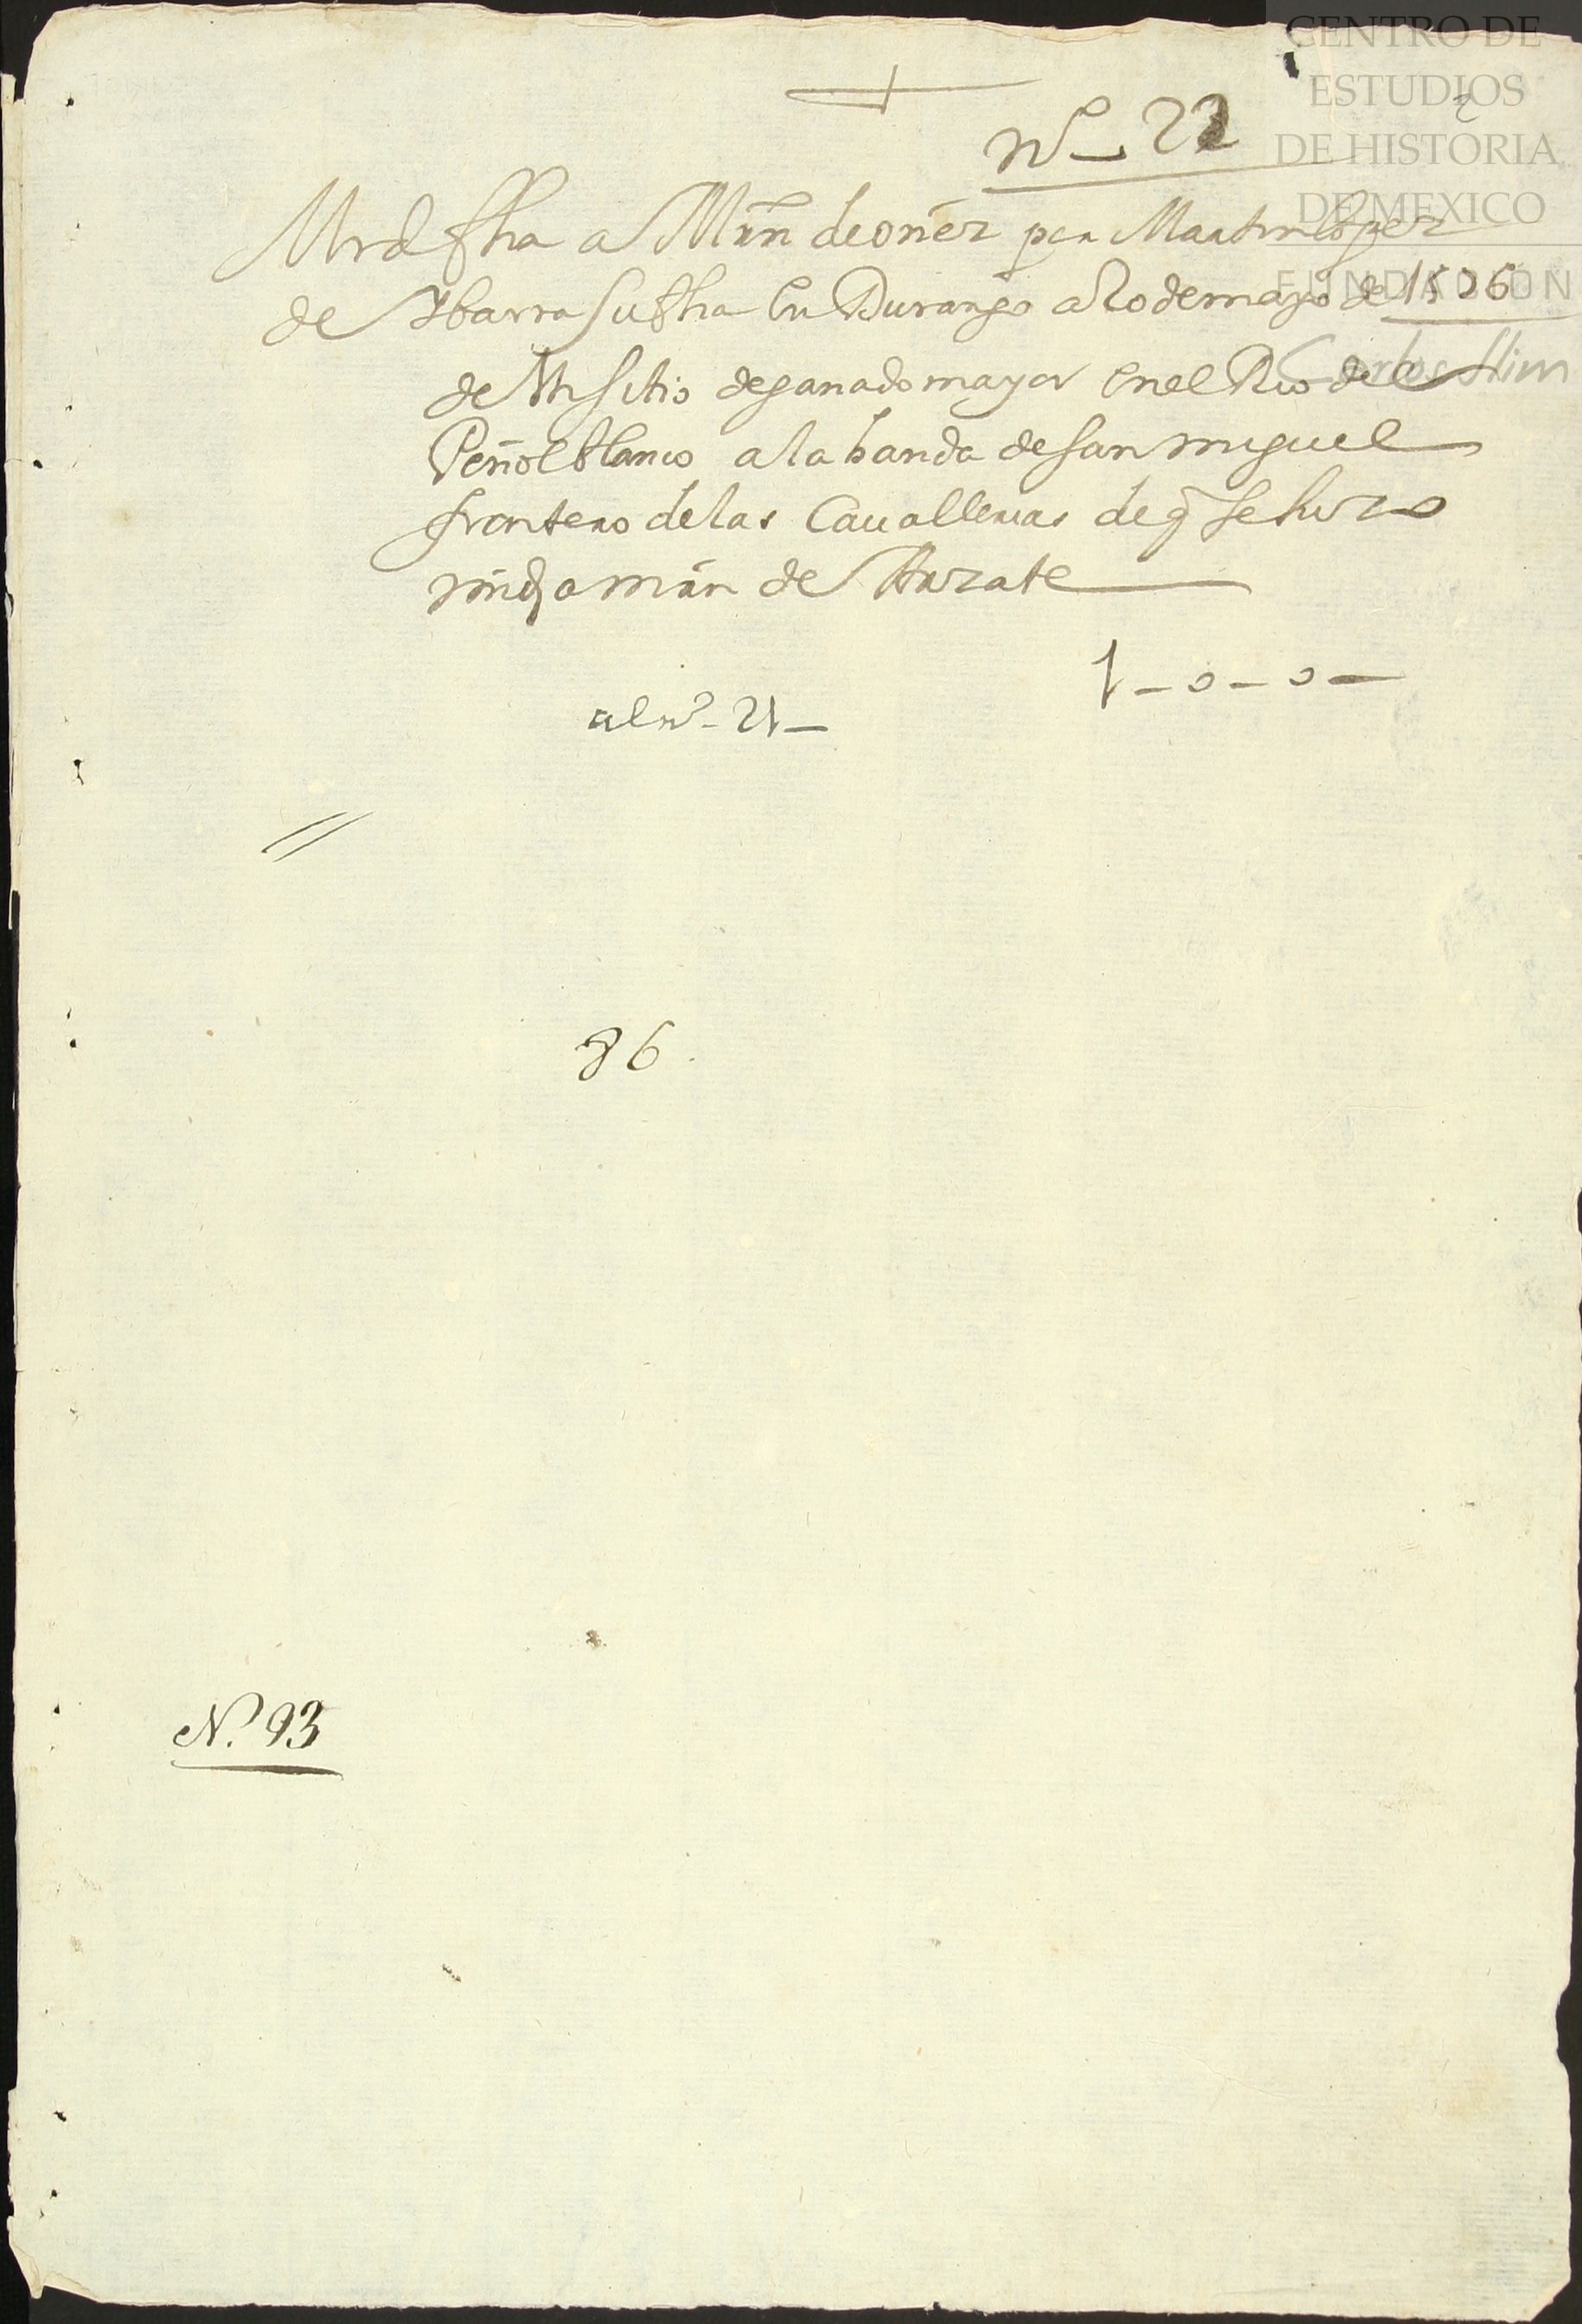 CENTRO DE
ESTUDIOS
DE HISTORIA
DE MEXICO
FUNDACION
Carlos Slim
nº_22
Mrd fha a Mrn de oñez por Martin lopez
de Ybarra su fha En Durango a 20 de mayo de 1586
de Vn sitio de ganado mayor En el Rio del
Peñol blanco a la banda de san miguel
frontero de las Cauallerias de q̄ se hizo
mrd a mrn de Arzate
1_0_0_
al nº_21_
86.
N.º 93